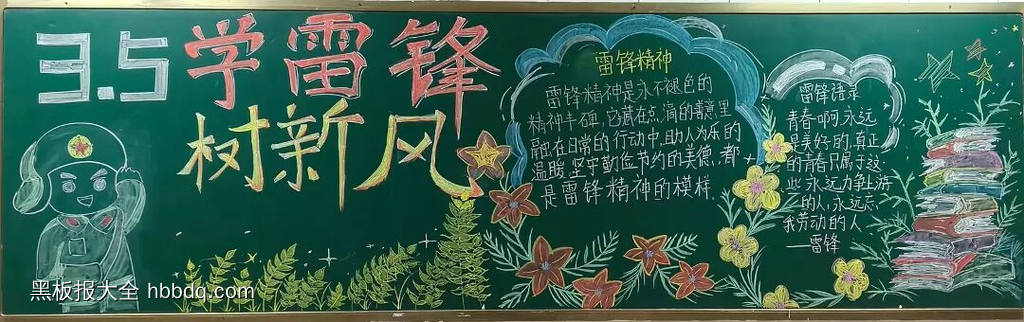 3.5学雷锋
树新风
雷锋精神
雷锋精神是永不褪色的
精神丰碑,它藏在点滴的善意里
融在日常的行动中,助人为乐的
温暖,坚守勤俭节约的美德,都
是雷锋精神的模样.
雷锋语录
青春啊,永远
是美好的,真正
的青春只属于这
些永远力争上游
的人,永远忘
我劳动的人
——雷锋
黑板报大全 hbbdq.com